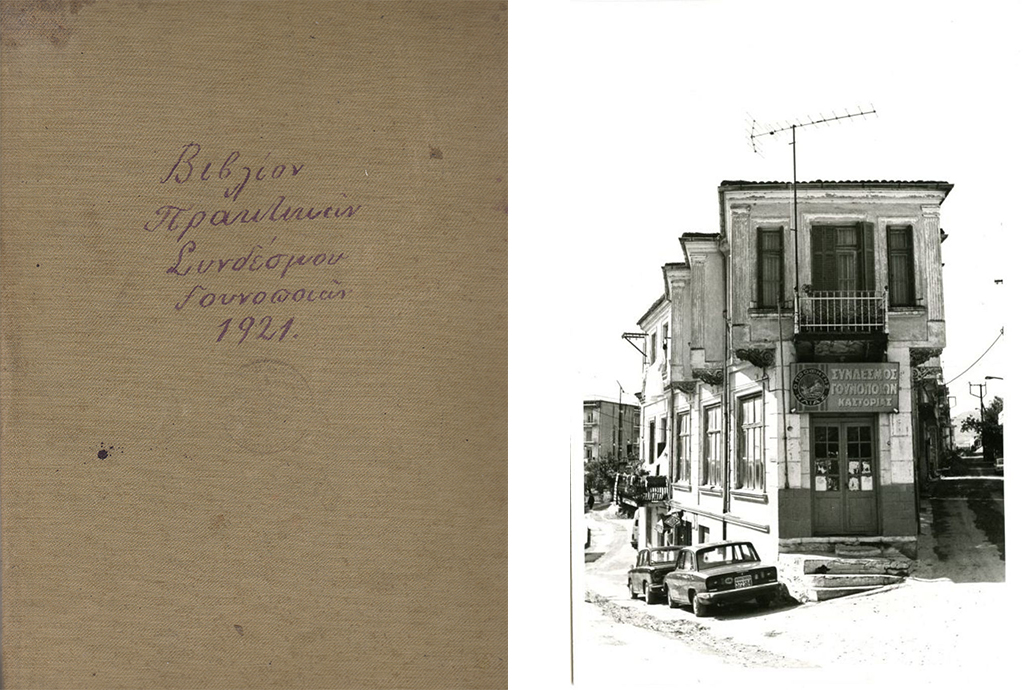 Βιβλίον
Πρακτικών
Συνδέσμου
Γουνοποιών
1921.
ΣΥΝΔΕΣΜΟΣ
ΓΟΥΝΟΠΟΙΩΝ
ΚΑΣΤΟΡΙΑΣ